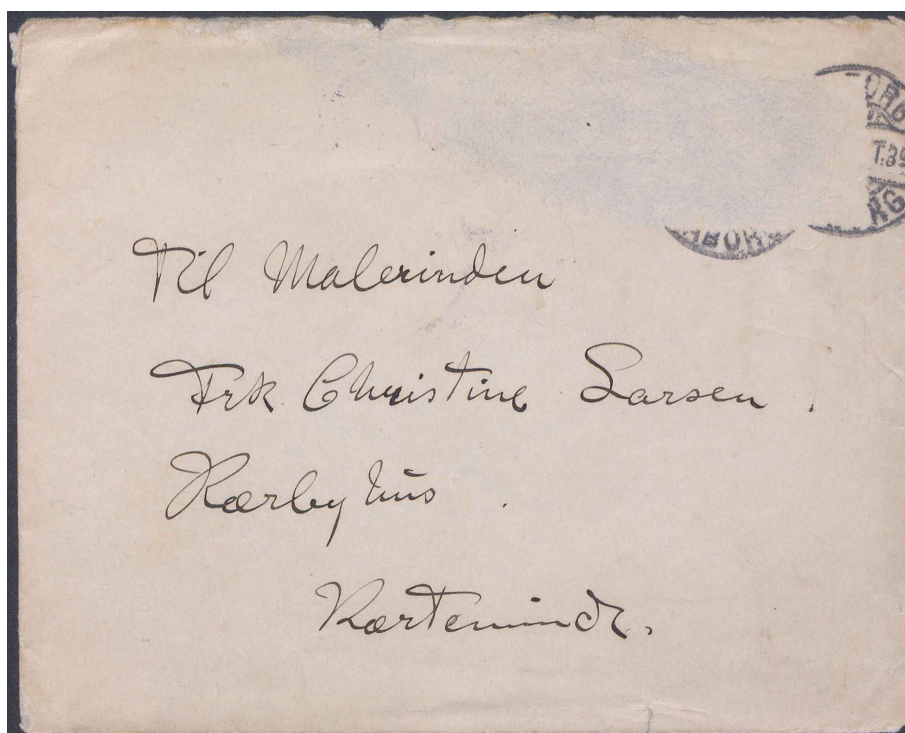 Til Malerinden
Frk Christine Larsen.
Kærbyhus.
Kerteminde.